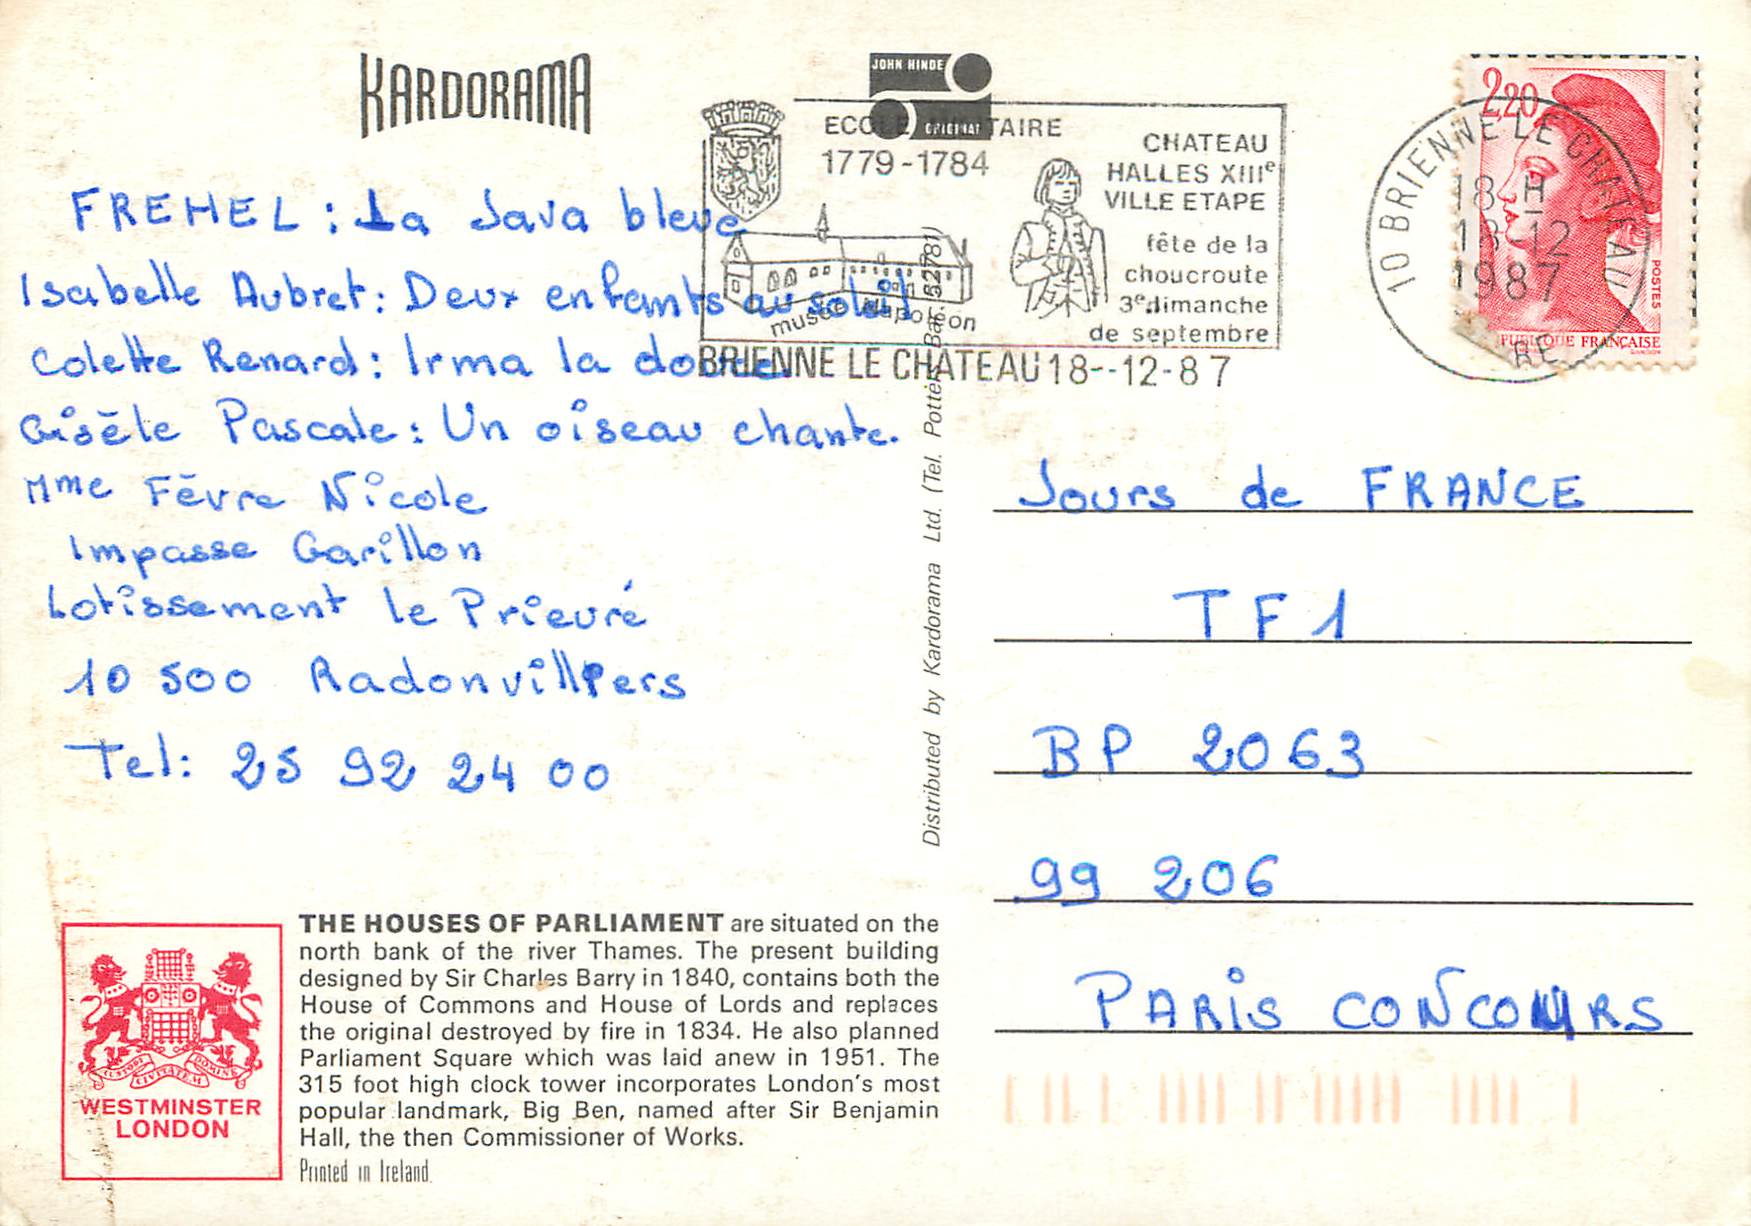 KARDORAMA
JOHN HINDE
ORIGINAL
ECOLE MILITAIRE
1779-1784
CHATEAU
HALLES XIIIe
VILLE ETAPE
fête de la
choucroute
3e dimanche
de septembre
musée Napoléon
BRIENNE LE CHATEAU 18--12-87
2,20
POSTES
RÉPUBLIQUE FRANÇAISE
10 BRIENNE LE CHATEAU
18 H
18-12
1987
FREHEL : La Java bleue
Isabelle Aubret : Deux enfants au soleil
Colette Renard : Irma la douce
Gisèle Pascale : Un oiseau chante.
Mme Fèvre Nicole
Impasse Carillon
Lotissement le Prieuré
10 500 Radonvilliers
Tel : 25 92 24 00
Distributed by Kardorama Ltd. (Tel. Potters Bar 52781)
Jours de FRANCE
TF1
BP 2063
99 206
PARIS CONCOURS
THE HOUSES OF PARLIAMENT are situated on the
north bank of the river Thames. The present building
designed by Sir Charles Barry in 1840, contains both the
House of Commons and House of Lords and replaces
the original destroyed by fire in 1834. He also planned
Parliament Square which was laid anew in 1951. The
315 foot high clock tower incorporates London's most
popular landmark, Big Ben, named after Sir Benjamin
Hall, the then Commissioner of Works.
Printed in Ireland.
CUSTODI CIVITATEM DOMINE
WESTMINSTER
LONDON